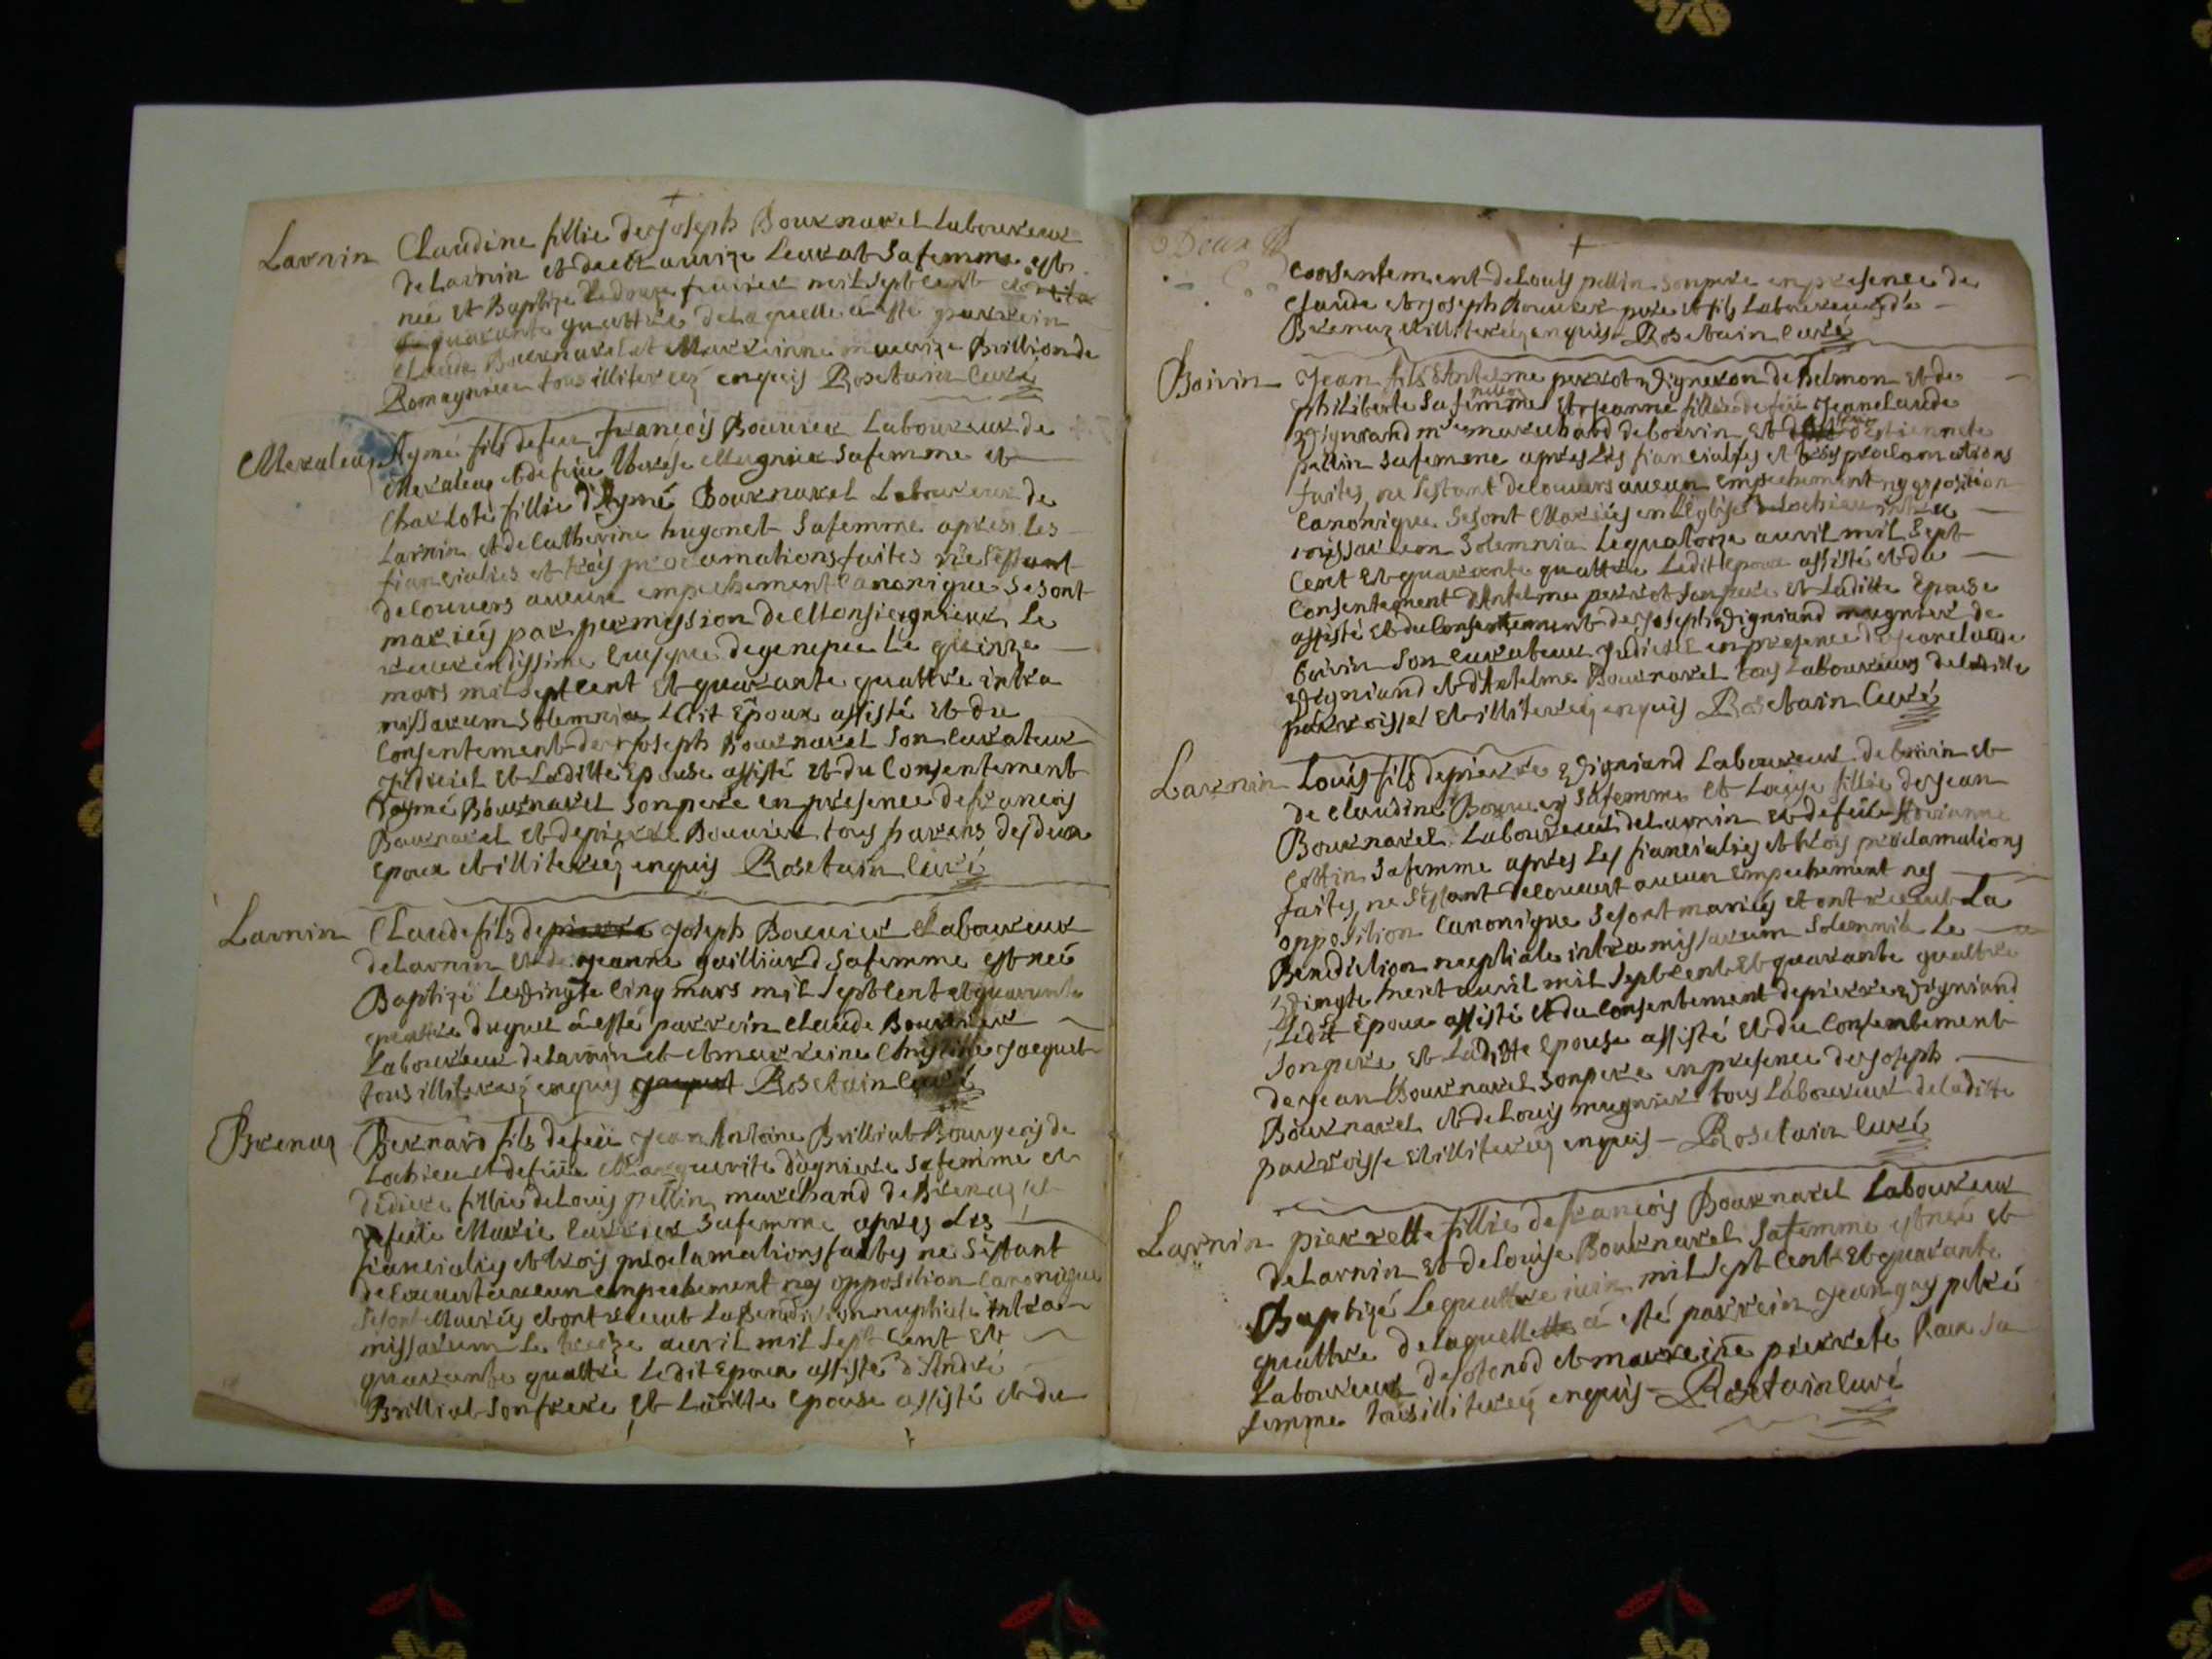 Larnin
Claudine fillie de Joseph Bournarel Laboureux
de Larnin et de Leurat sa femme est
née et Baptize le douze feuvrier mil sept cent
quarante quattre de laquelle a esté parrein
Claude Bournarel et Marreinne Brillion de
Romagnieu tous illiterez enquis Rosetain Curé
Aymé fils de feu francois Bouvier Laboureur de
et de feue therese Mugnier sa femme et
Charlote fillie d'Aymé Bournarel Laboureur de
Larnin et de Catherine hugonet sa femme apres les
fiancialies et trois proclamations faites ne s'estant
decouvers aucun empechement Canonique se sont
mariéz par permission de Monsieigneur Le
reverendissime Evesque de geneve Le quinze
mars mil sept cent et quarante quattre intra
missarum solemnia Ledit Epoux assisté et du
Consentement de Joseph Bournarel son Curateur
Judiciel et Laditte Epouse assisté et du Consentement
d'aymé Bournarel son pere en presence de francois
Bournarel et de pierre Bouvier tous parens desdeux
Epoux et illiterez enquis Rosetain Curé
Larnin
Claude fils de pierre Joseph Bouvier Laboureur
de Larnin et de jeanne gailliard sa femme est neé
Baptizé Le vingte Cinq mars mil sept Cent et quarante
quattre duquel a esté parrein Claude Bouvier
Laboureur de Larnin et et marreine Christine Jacquet
tous illiterez enquis Rosetain Curé
Brenaz
Bernard fils de feü Jean Antoine Brilliat Bourgeois de
Lochieu et de feüe Marguerite dagniere sa femme et
didiere fillie de Louis pellin marchand de Brenaz et
de feüe Marie Carrier sa femme apres Les
fiancialies et trois proclamations faites ne s'estant
decouvert aucun empechement ney opposition Canonique
se sont Mariéz et ont receub La Benediction nuptiale intra
missarum Le treize auvril mil sept Cent et
quarante quattre Ledit Epoux assisté d'André
Brilliat son frere et Laditte Epouse assisté et du
Consentement de Louis pellin son pere en presence de
Claude et Joseph Bouvier pere et fils Laboureurs de
Brenaz illiterez enquis Rosetain Curé
Boirin
Jean fils d'Antelme perrot vigneron de Belmon et de
philiberte sa femme et Jeanne fillie de feü Jeanclaude
Vigniand marchand de boirin et d'Estiennete
pallin sa femme apres Les fiancialies et trois proclamations
faites, ne s'estant decouvers aucun empechement ny opposition
Canonique se sont Mariéz en L'église de Lochieu intra
missarum solemnia Le quatorze auvril mil sept
Cent et quarante quattre Ledit Epoux assisté et du
Consentement d'Antelme perrot son pere et Laditte Epouse
assisté et du Consentement de Joseph Vigniand mugnier de
boirin son Curateur Judiciel en presence de Jeanclaude
Vigniand et d'Antelme Bournarel tous Laboureurs de laditte
parroisse et illiterez enquis Rosetain Curé
Larnin
Louis fils de pierre Vigniand Laboureur de boirin et
de Claudine Bouvier sa femme et Louise fillie de Jean
Bournarel Laboureur de Larnin et de feüe
Cottin sa femme apres Les fiancialies et trois proclamations
faites, ne s'estant decouvert aucun Empechement ney
opposition Canonique se sont mariéz et ont receub La
Benediction nuptiale intra missarum solemnia Le
vingte neuf auvril mil sept cent et quarante quattre
Ledit Epoux assisté et du Consentement de pierre Vigniand
son pere et Laditte Epouse assisté et du Consentement
de Jean Bournarel son pere en presence de Joseph
Bournarel et de Louis mugnier tous Laboureur de laditte
parroisse et illiterez enquis Rosetain Curé
Larnin
pierrette fillie de francois Bournarel Laboureur
de Larnin et de Louise Bournarel sa femme est neé et
Baptizé Le quattre iuin mil sept Cent et quarante
quattre de laquelle a esté parrein Jean guy
Laboureur de Sotonod et marreine pierrete Roux sa
femme tous illiterez enquis Rosetain Curé